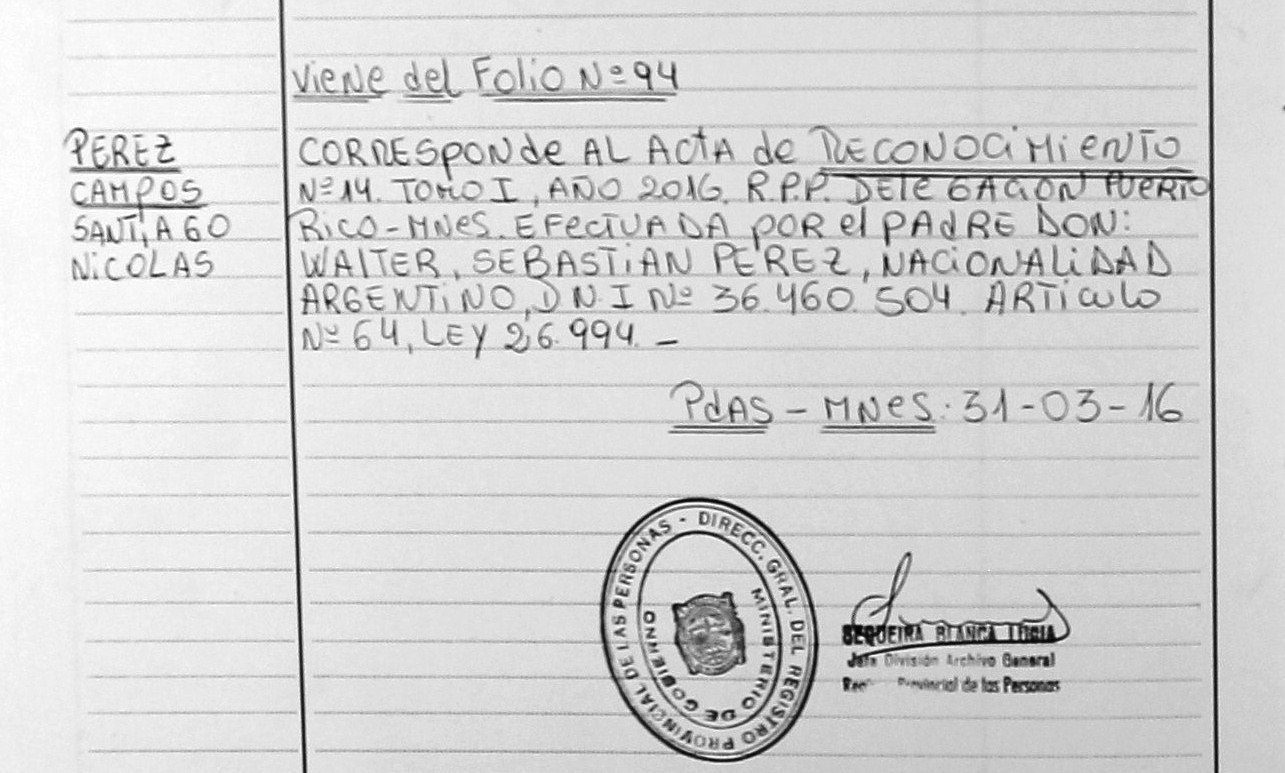 Viene del Folio Nº 94
PEREZ
CAMPOS
SANTIAGO
NICOLAS
CORRESponde AL ACTA de RECONOCIMIENTO
Nº 14. TOMO I, AÑO 2016. R.P.P. DELEGACION PUERTO
RICO-MNES. EFECTUADA POR el PADRE DON:
WALTER, SEBASTIAN PEREZ, NACIONALIDAD
ARGENTINO, D.N.I Nº 36.460.504. ARTICULO
Nº 64, LEY 26.994. –
PdAS – MNES: 31-03-16
DIRECC. GRAL. DEL REGISTRO PROVINCIAL DE LAS PERSONAS -
MINISTERIO DE GOBIERNO
SEQUEIRA BLANCA LUCIA
Jefa División Archivo General
Provincial de las Personas